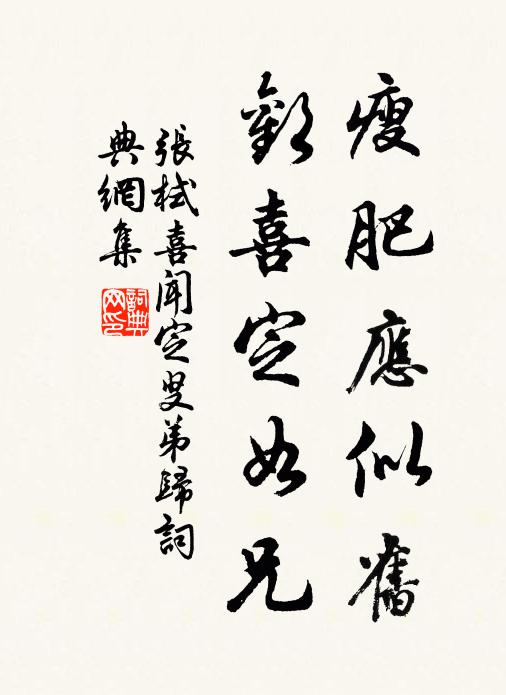 瘦肥應似舊
歡喜定如兄
張栻喜聞定叟弟歸詞
典網集
詞典網印